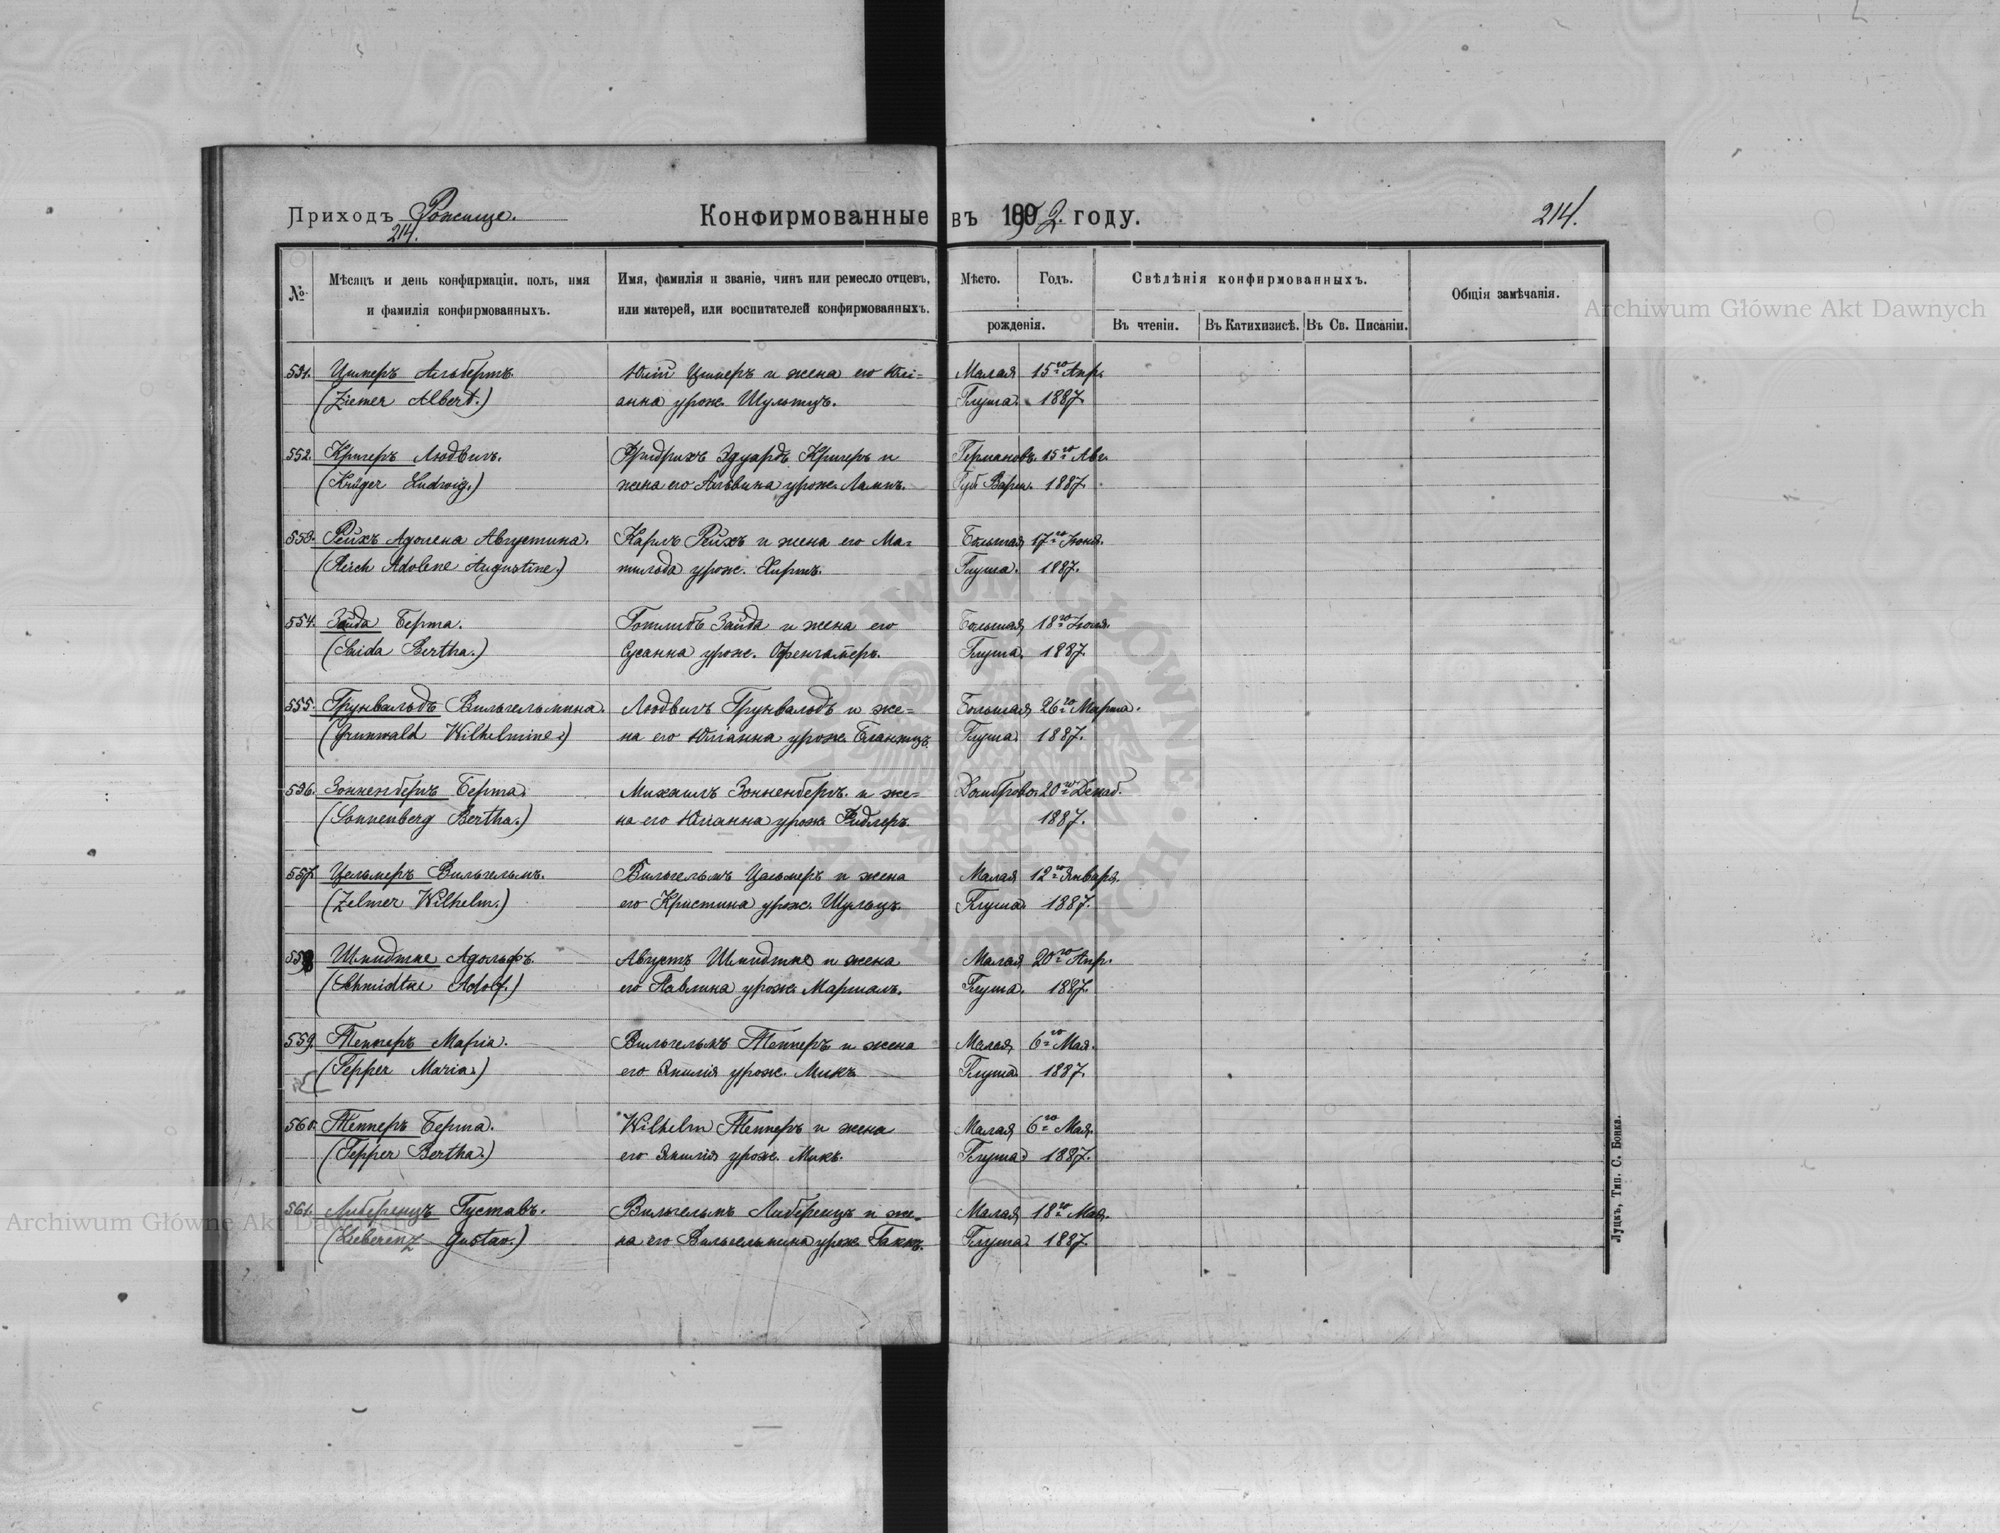 Приходъ Рожище.
214.
Конфирмованные въ 1902. году.
214.
№ Мѣсяцъ и день конфирмаціи. полъ, имя и фамилія конфирмованныхъ.
Имя, фамилія и званіе, чинъ или ремесло отцевъ, или матерей, или воспитателей конфирмованныхъ.
Мѣсто. Годъ. рожденія.
Свѣдѣнія конфирмованныхъ.
Въ чтеніи. Въ Катихизисѣ. Въ Св. Писаніи.
Общія замѣчанія.
551. Цимеръ Альбертъ. Юлій Цимеръ и жена его Юлі= Малая 15го Апр.
(Ziemer Albert.) анна урож. Шультцъ. Глуша. 1887.
552. Кригеръ Людвигъ. Фридрихъ Эдуардъ Кригеръ и Германовъ 15го Авг.
(Krüger Ludwig.) жена его Альвина урож. Лампъ. Губ. Варш. 1887.
553. Рейхъ Адолена Августина. Карлъ Рейхъ и жена его Ма= Большая 17го Іюня.
(Reich Adolene Augustine.) тильда урож. Хиртъ. Глуша. 1887.
554. Зайда Берта. Готлибъ Зайда и жена его Большая 18го
(Saida Bertha.) Сусанна урож. Глуша. 1887.
555. Грунвальдъ Вильгельмина. Людвигъ Грунвальдъ и же= Большая 26го Марта.
(Grunwald Wilhelmine.) на его Юліанна урож. Глуша. 1887.
556. Зонненбергъ Берта. Михаилъ Зонненбергъ и же= Домброва 20го Декаб.
(Sonnenberg Bertha.) на его Юліанна урож. Фидлеръ 1887.
557. Цельмеръ Вильгельмъ. Вильгельмъ Цельмеръ и жена Малая 12го Января.
(Zelmer Wilhelm.) его Кристина урож. Шульцъ. Глуша. 1887.
558. Шмидтке Адольфъ. Августъ Шмидтке и жена Малая 20го Апр.
(Schmidtke Adolf.) его Павлина урож. Маршалъ. Глуша. 1887.
559. Тепперъ Марія. Вильгельмъ Тепперъ и жена Малая 6го Мая.
(Tepper Maria.) его Эмилія урож. Микъ Глуша 1887.
560. Тепперъ Берта. Wilhelm Тепперъ и жена Малая 6го Мая.
(Tepper Bertha.) его Эмилія урож. Микъ. Глуша 1887.
561. Либеренцъ Густавъ. Вильгельмъ Либеренцъ и же= Малая 18го Мая.
(Lieberenz Gustav.) на его Вильгельмина урож. Глуша. 1887.
Луцкъ, Тип. С. Бонка.
Archiwum Główne Akt Dawnych
Archiwum Główne Akt Dawnych
ARCHIWUM GŁÓWNE AKT DAWNYCH